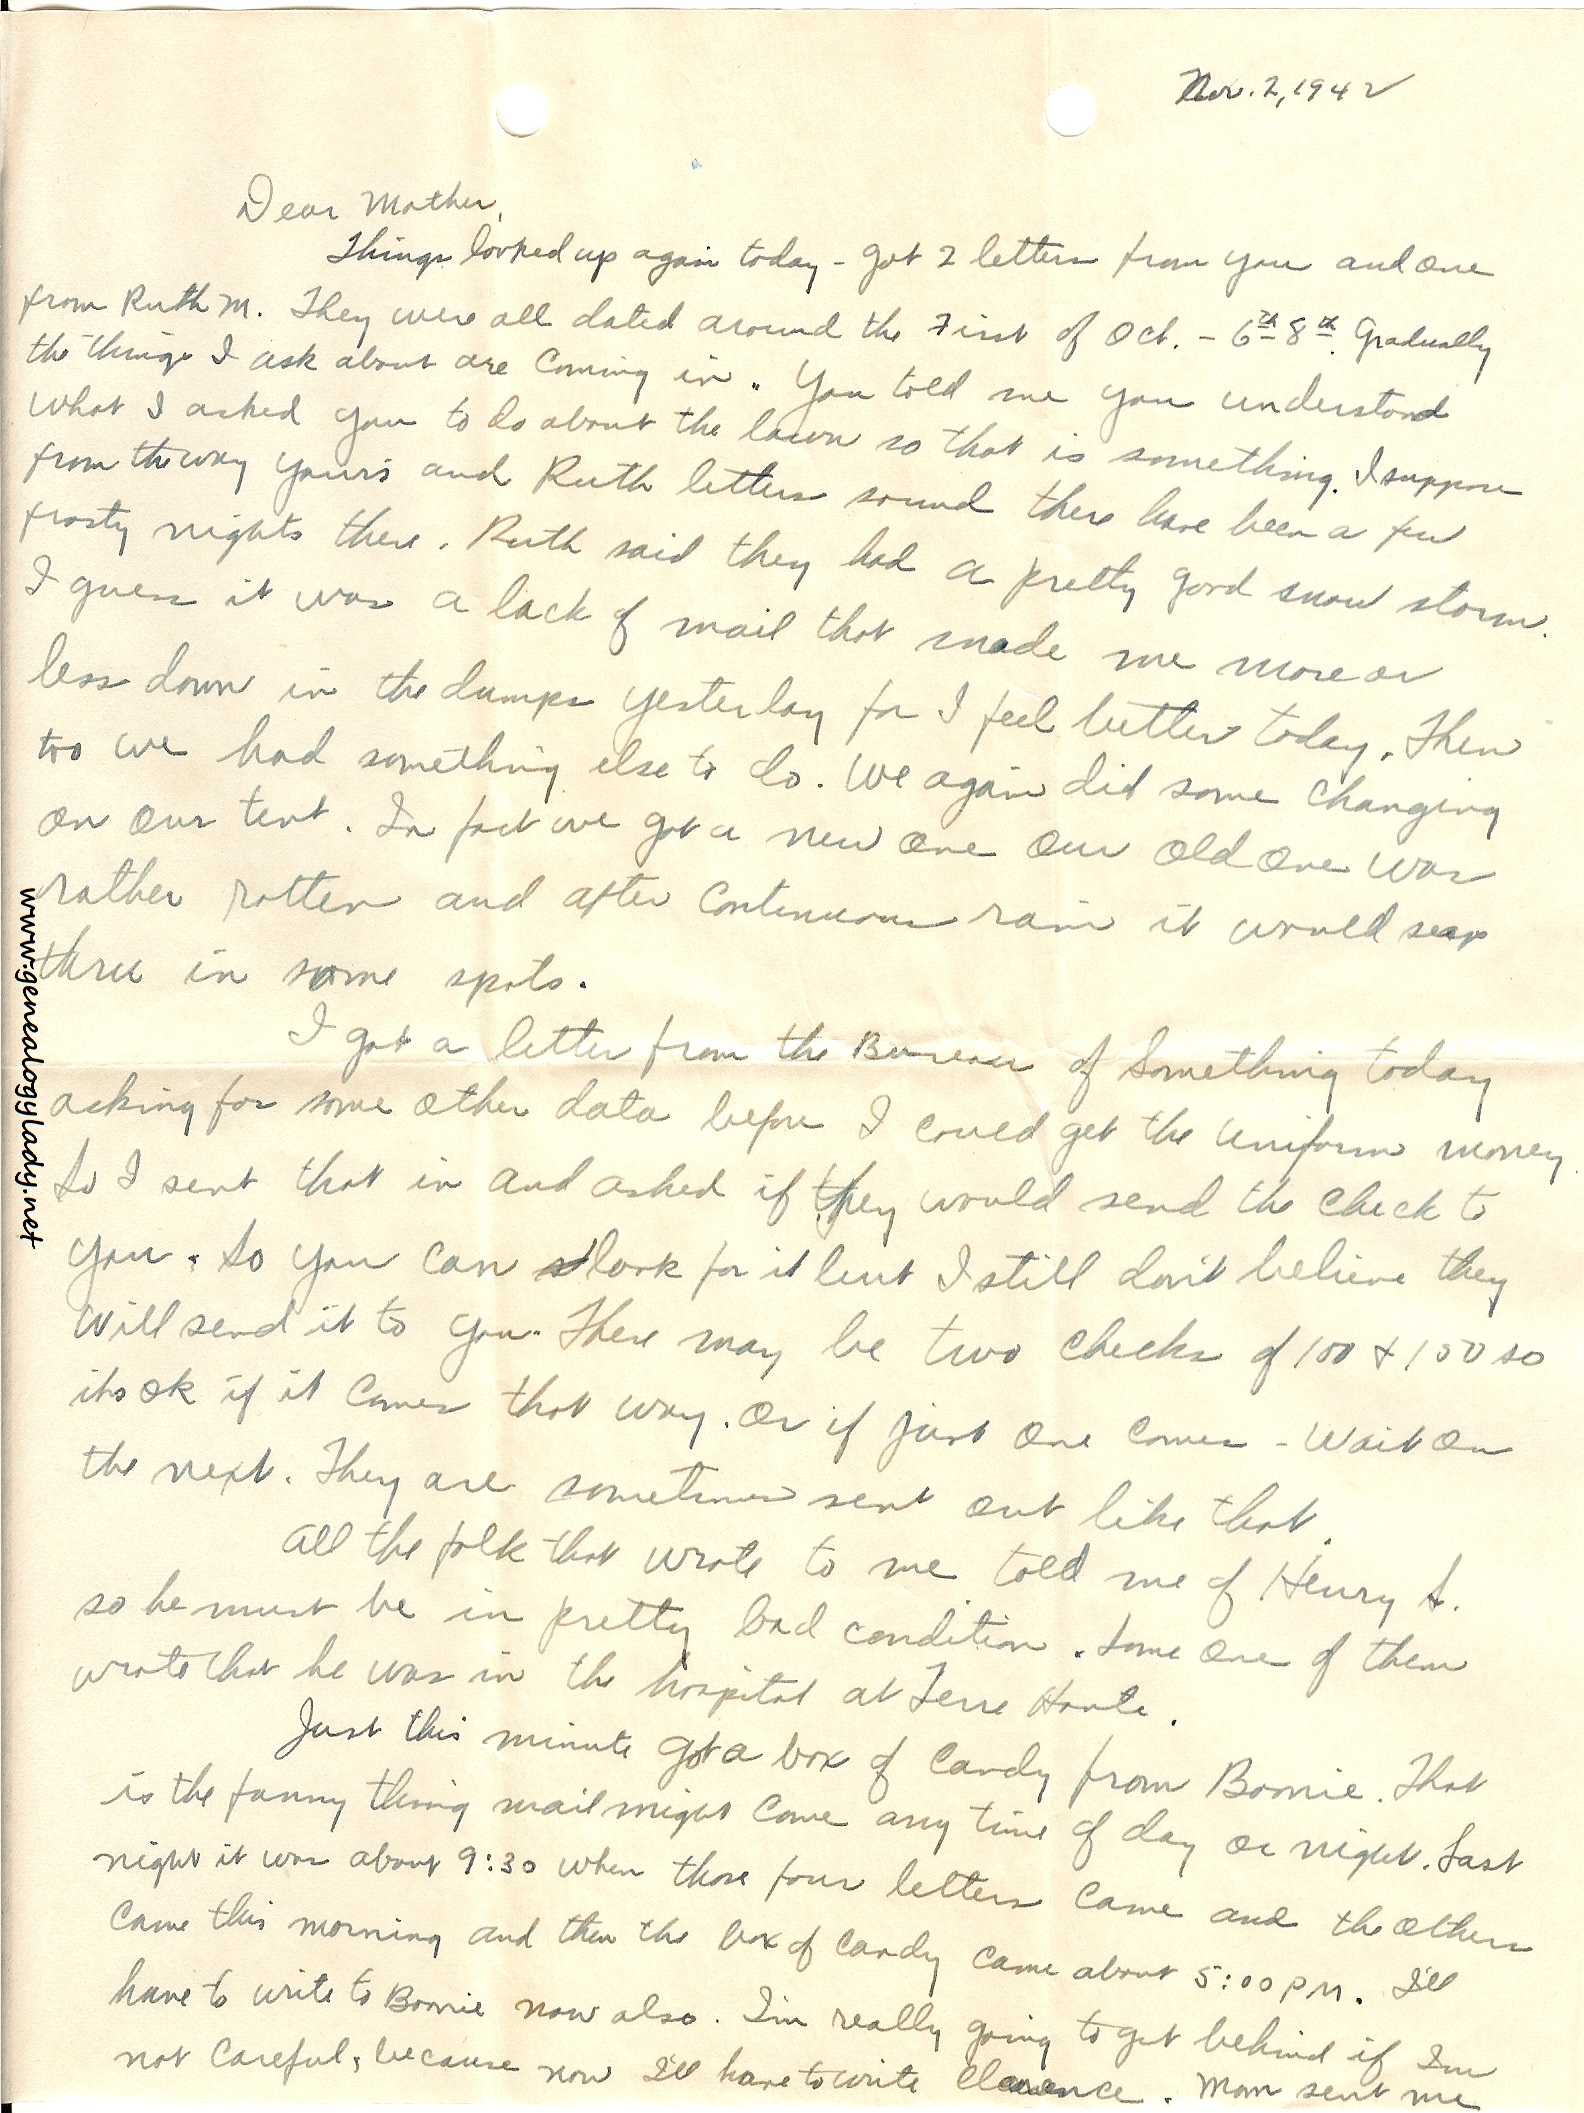 Nov. 2, 1942
Dear Mother,
Things looked up again today - got 2 letters from you and one
from Ruth M. They were all dated around the First of Oct. - 6th 8th. Gradually
the things I ask about are coming in. You told me you understood
what I asked you to do about the lawn so that is something. I suppose
from the way your's and Ruth letters sound there have been a few
frosty nights there. Ruth said they had a pretty good snow storm.
I guess it was a lack of mail that made me more or
less down in the dumps yesterday for I feel better today. Then
too we had something else to do. We again did some changing
on our tent. In fact we got a new one our old one was
rather rotten and after continuous rain it would seap
thru in some spots.
I got a letter from the Bureau of Something today
asking for some other data before I could get the uniform money
So I sent that in and asked if they would send the check to
you. So you can look for it but I still don't believe they
will send it to you. There may be two checks of 100 + 150 so
its ok if it comes that way. Or if just one comes - wait on
the next. They are sometimes sent out like that.
All the folk that wrote to me told me of Henry S.
so he must be in pretty bad condition. Some one of them
wrote that he was in the hospital at Terre Haute.
Just this minute got a box of candy from Bonnie. That
is the funny thing mail might come any time of day or night. Last
night it was about 9:30 when those four letters came and the others
came this morning and then the box of candy came about 5:00 PM. I'll
have to write to Bonnie now also. I'm really going to get behind if I'm
not careful, because now I'll have to write Clarence. Mom sent me
www.genealogylady.net